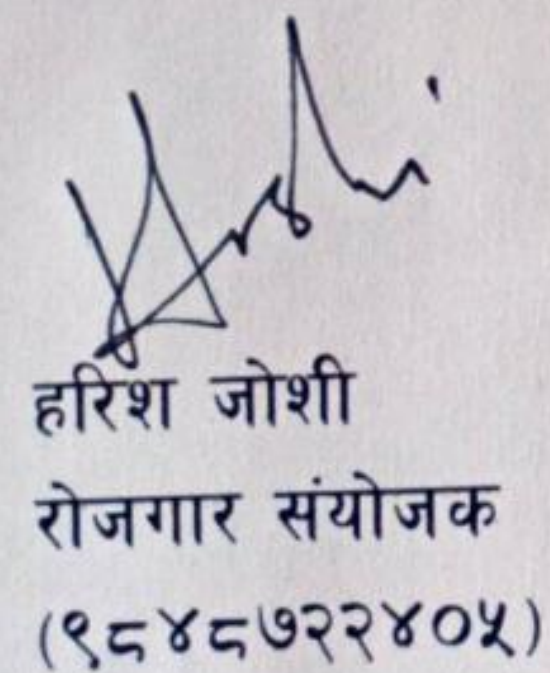 हरिश जोशी
रोजगार संयोजक
(९८४८७२२४०५)